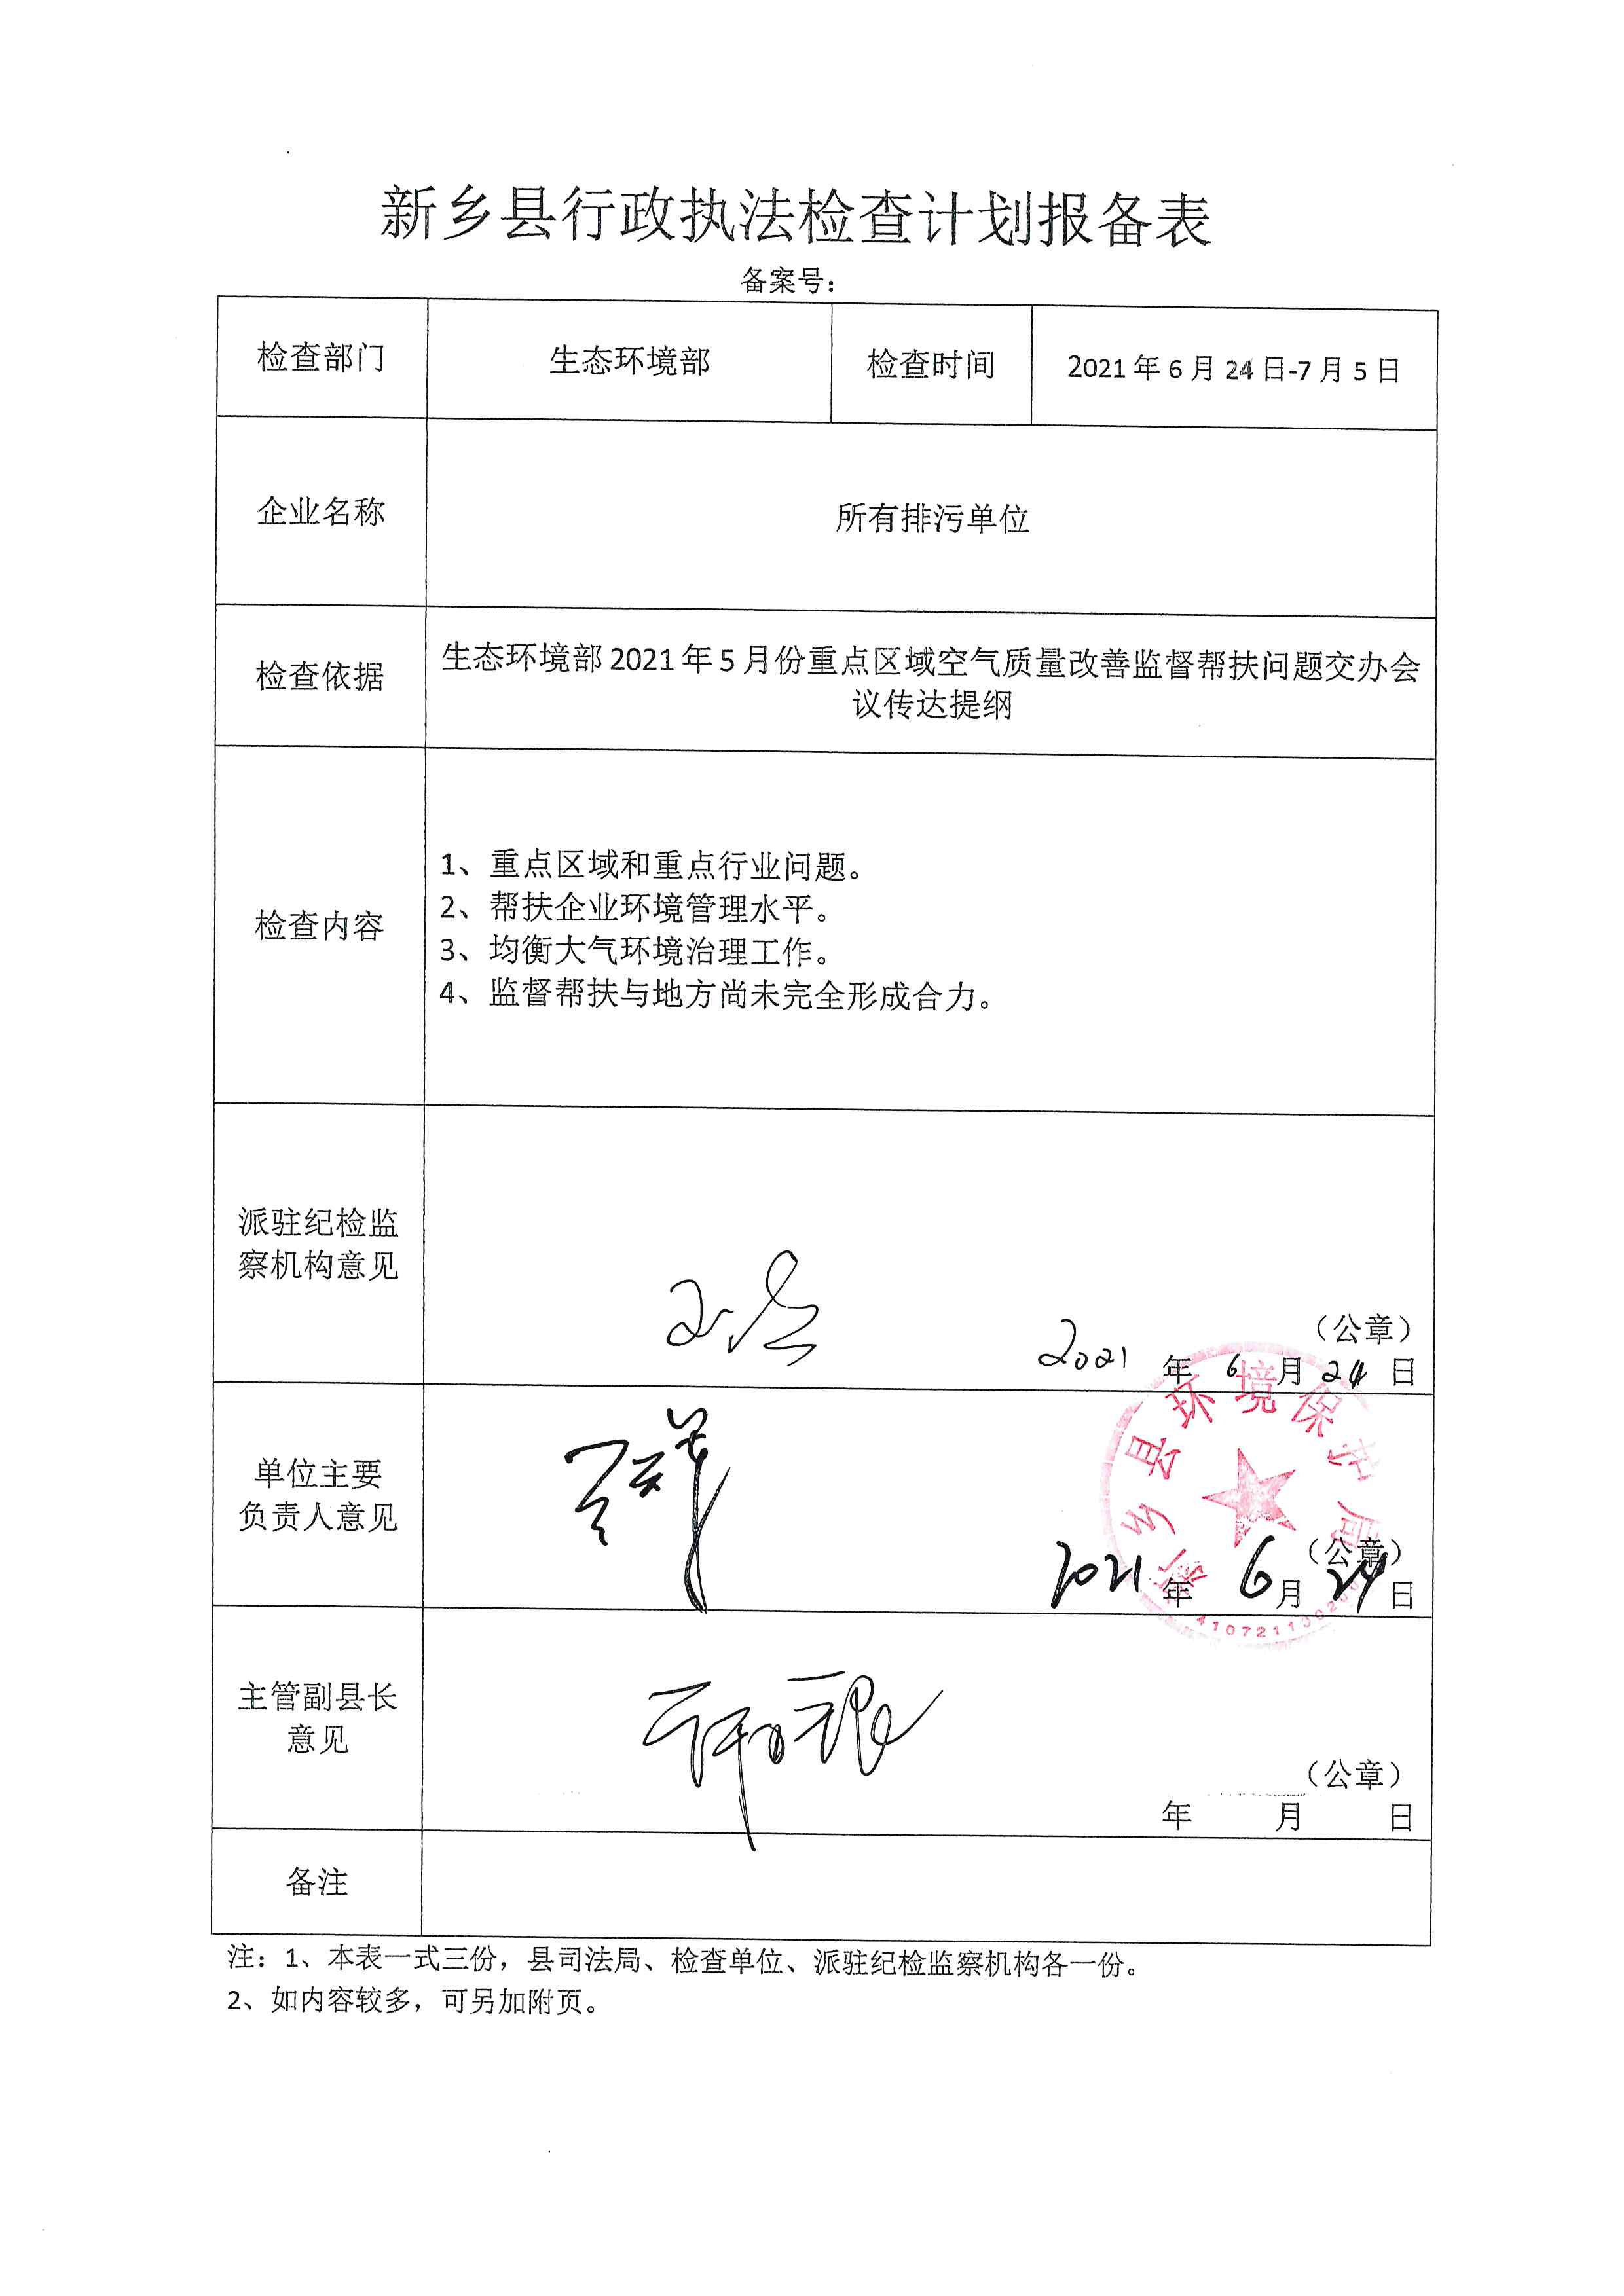 新乡县行政执法检查计划报备表
备案号：
检查部门 生态环境部 检查时间 2021年6月24日-7月5日
企业名称 所有排污单位
检查依据
生态环境部2021年5月份重点区域空气质量改善监督帮扶问题交办会
议传达提纲
检查内容
1、重点区域和重点行业问题。
2、帮扶企业环境管理水平。
3、均衡大气环境治理工作。
4、监督帮扶与地方尚未完全形成合力。
派驻纪检监
察机构意见
（公章）
2021年6月24日
单位主要
负责人意见
新乡县环境保护局
（公章）
2021年6月24日
主管副县长
意见
（公章）
年 月 日
备注
注：1、本表一式三份，县司法局、检查单位、派驻纪检监察机构各一份。
2、如内容较多，可另加附页。